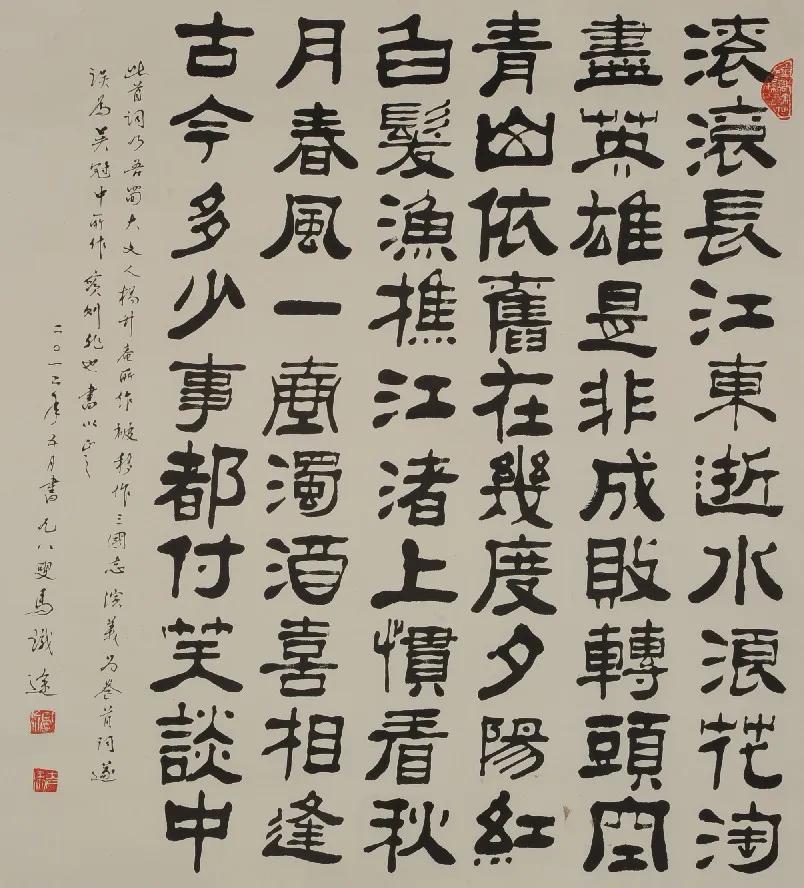 滚滚長江東逝水浪花淘
盡英雄是非成敗轉頭空
青山依舊在幾度夕陽紅
白髮漁樵江渚上慣看秋
月春風一壺濁酒喜相逢
古今多少事都付笑談中
此首詞乃吾蜀大文人楊升庵所作被移作三國志演義为卷首詞遂
误为吴冠中所作實则非也書以正之
二〇一二年五月書九八叟馬識途